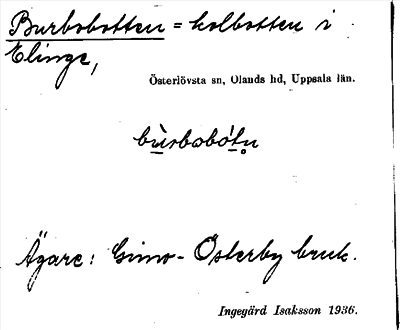 Burbobotten = kolbotten i
Elinge,
Österlövsta sn, Olands hd, Uppsala län.
bùrbobótn
Ägare: Gimo-Österby bruk.
Ingegärd Isaksson 1936.